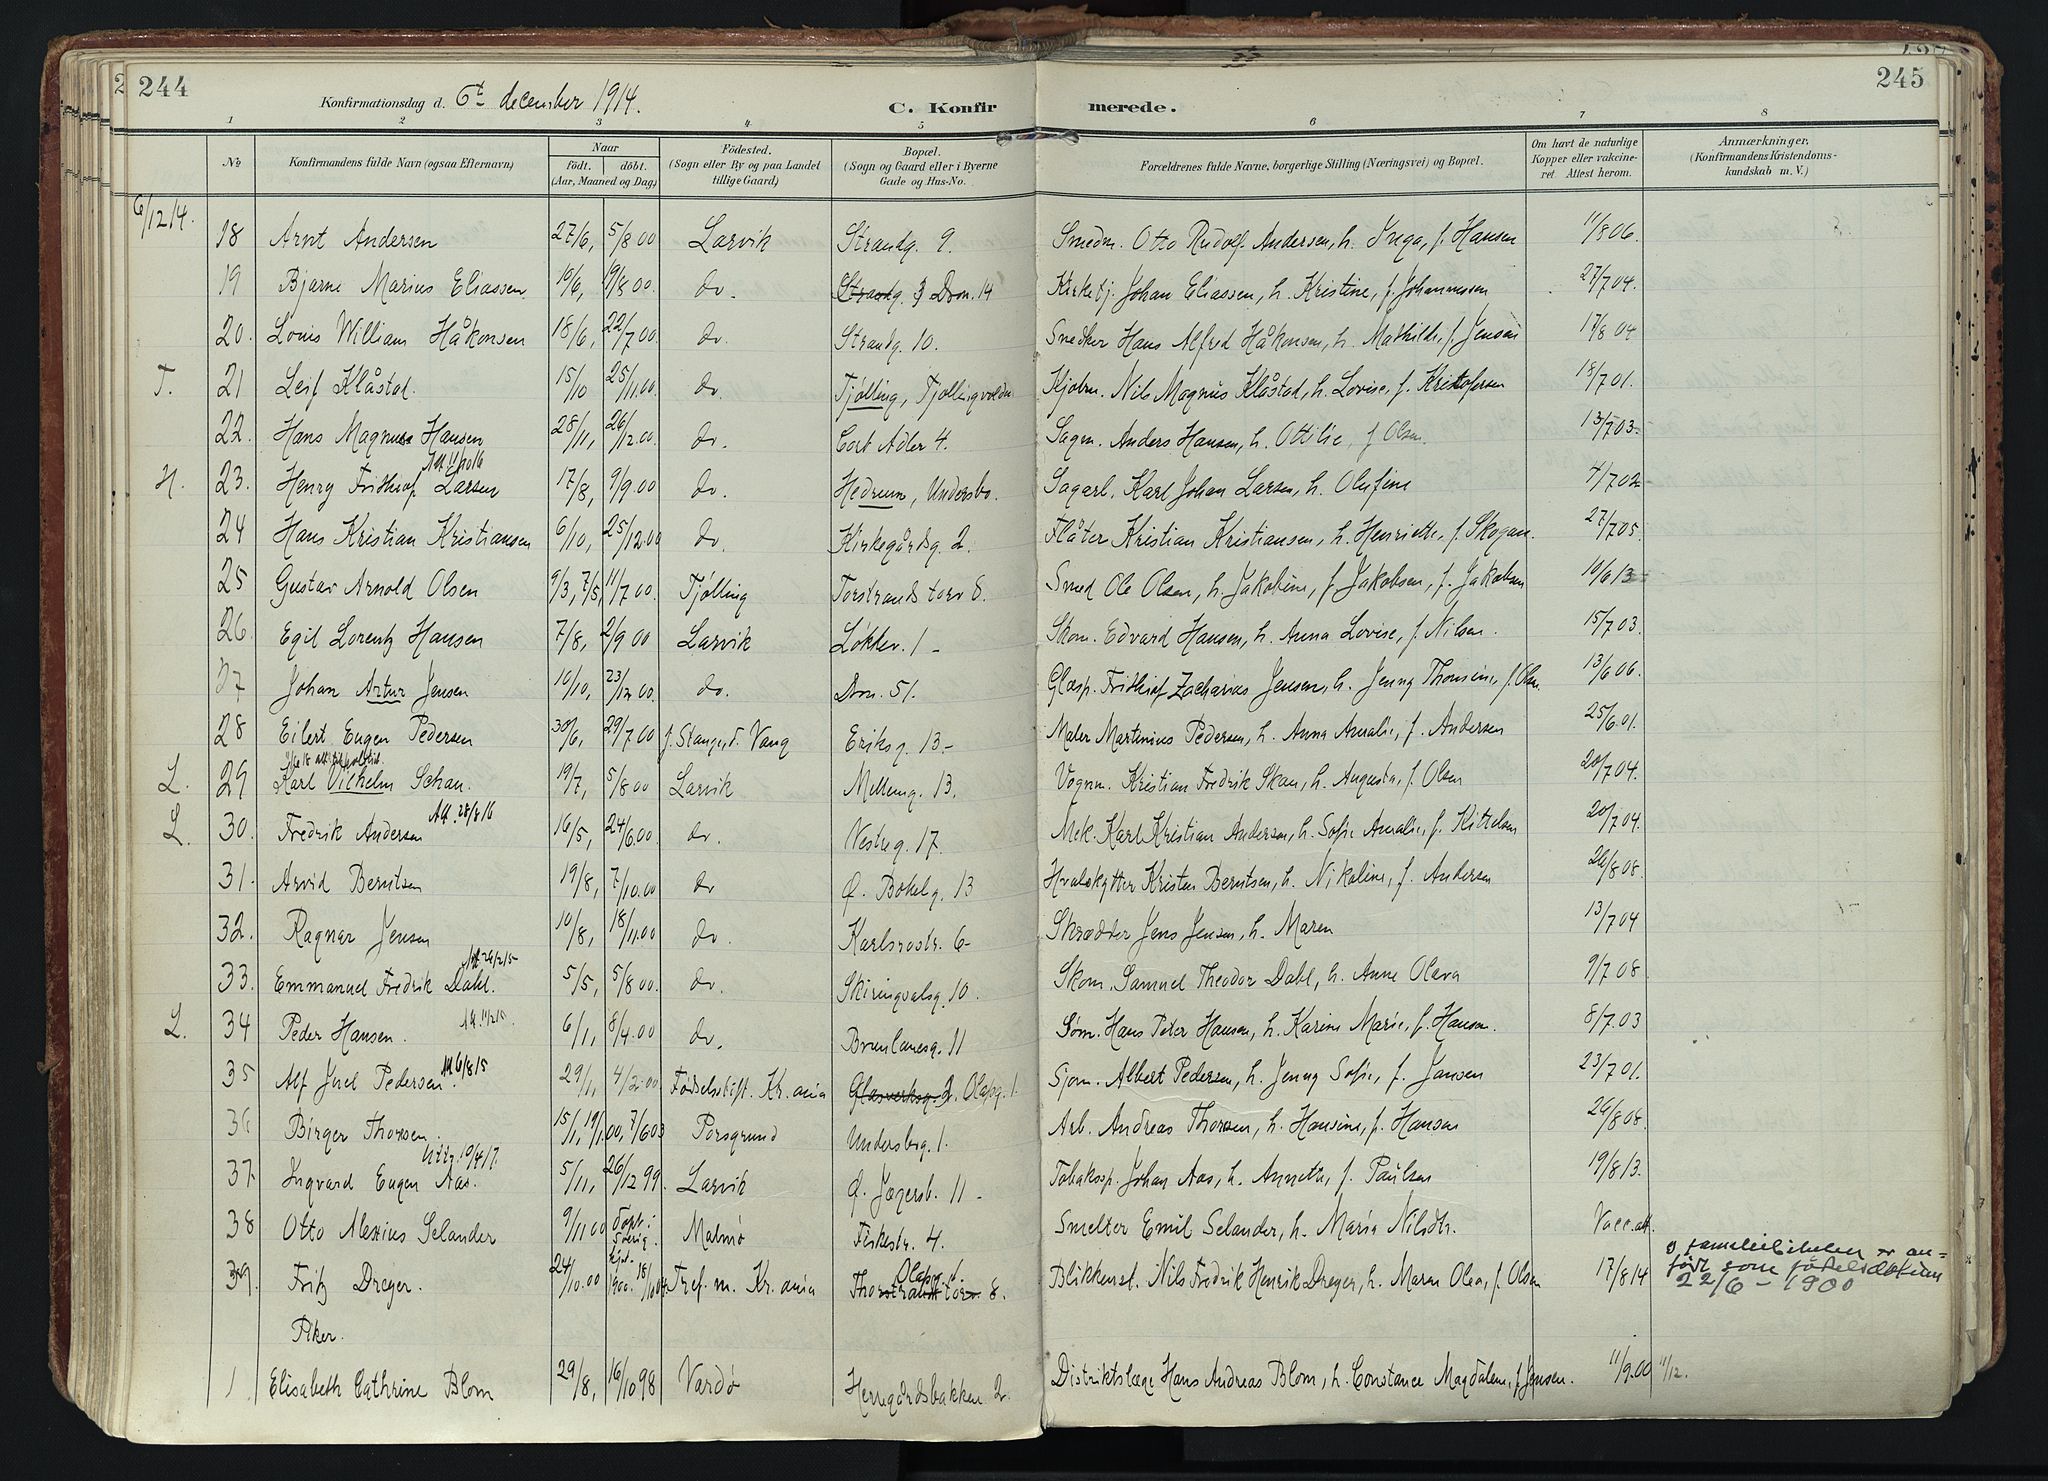 244
Konfirmationsdag d. 6te december 1914.
C. Konfirmerede.
245
1 2 3 4 5 6 7 8
No
Konfirmandens fulde Navn (ogsaa Efternavn)
Naar
født. døbt.
(Aar, Maaned og Dag)
Fødested.
(Sogn eller By og paa Landet
tillige Gaard)
Bopæl.
(Sogn og Gaard eller i Byerne
Gade og Hus-No.
Forældrenes fulde Navne, borgerlige Stilling (Næringsvei) og Bopæl.
Om havt de naturlige
Kopper eller vakcine-
ret Attest herom.
Anmærkninger.
(Konfirmandens Kristendoms-
kundskab m. V.)
6/12 14.
18 Arnt Andersen 27/6, 5/8 00 Larvik Strandg. 9. Smedm. Otto Rudolf Andersen, h. Inga, f. Hansen 11/8 06.
19 Bjarne Marius Eliassen 10/6, 19/8 00. do. Strandg. 3 Dron. 14 Kirketj. Johan Eliassen, h. Kristine, f. Johannessen 27/7 04.
20. Louis William Håkonsen 18/6, 22/7 00. do. Strandg. 10. Snedker Hans Alfred Håkonsen, h. Mathilde, f. Jensen 17/8 04
T. 21 Leif Klåstad. 15/10 25/11.00. do. Tjølling, Tjøllingvolden Kjøbm. Nils Magnus Klåstad, h. Lovise, f. Kristofersen 18/7 01.
22. Hans Magnus Hansen 28/11, 26/12.00. do. Cort Adler 4. Sagm. Anders Hansen, h. Ottilie, f Olsen. 13/7 03
Att 11/10 16
H. 23. Henry Frithjof Larsen 17/8, 9/9 00 do. Hedrum, Undersbo. Sagarb. Karl Johan Larsen, h. Olufine 4/7 02
24 Hans Kristian Kristiansen 6/10, 25/12.00 do. Kirkegårdsg. 2. Flåter Kristian Kristiansen, h. Henriette, f. Skogan. 27/7 05.
25 Gustav Arnold Olsen 9/3, 7/5, 11/7 00. Tjølling Torstrands torv 8. Smed Ole Olsen, h. Jakobine, f Jakobsen, f. Jakobsen 10/6 13
26. Egil Lorentz Hansen 7/8, 2/9 00 Larvik Løkkev. 1 - Skom. Edvard Hansen, h. Anna Lovise, f. Nilsen. 15/7 03.
27 Johan Artur Jensen 10/10, 23/12 00. do. Dron. 51. Glasp. Frithjof Zacharius Jensen, h. Jenny Thomine, f. Olsen. 13/6 06.
28 Eilert Eugen Pedersen 30/6, 29/7 00 f. Stange, d. Vang Eriksg. 13.- Maler Martinius Pedersen, h. Anna Amalie, f. Andersen 25/6 01.
L. 29 Karl Vilhelm Schau. 19/7, 5/8 00 Larvik Mellemg. 13. Vognm. Kristian Fredrik Skau, h. Augusta, f. Olsen 20/7 04.
Att. 28/8 16
L. 30. Fredrik Andersen 16/5, 24/6.00. do. Nestug. 17. Mek. Karl Kristian Andersen, h. Sofie Amalie, f. Kittelsen 20/7 04.
31. Arvid Berntsen 19/8, 7/10.00 do Ø. Bøkelg. 13 Hvalskytter Kristen Berntsen, h. Nikoline, f. Andersen 26/8 08.
32. Ragnar Jensen 10/8, 18/11.00 do. Karlsrostr. 6- Skrædder Jens Jensen, h. Maren 13/7 04
33. Emmanuel Fredrik Dahl. 5/5, 5/8 00. do. Skiringvalsg. 10. Skom. Samuel Theodor Dahl, h. Anne Olava 9/7 08
L. 34 Peder Hansen. 6/1, 8/4.00 do. Brunlanesg. 11 Søm. Hans Peter Hansen, h. Karine Marie, f. Hansen. 8/7.03
Att 6/8 15
35 Alf Juel Pedersen. 29/1, 4/2.00. Fødselsstift. Kr.ania Glasverksg. 2. Olafsg. 1. Sjøm. Albert Pedersen, h. Jenny Sofie, f. Jansen 23/7 01.
36 Birger Thorsen. 15/1, 19/1.00, 7/6 03 Porsgrund Undersbog. 1. Arb. Andreas Thorsen, h. Hansine, f. Hansen 26/8 08.
19/4 17.
37. Ingvard Eugen Aas. 5/11, 26/12 99. Larvik Ø. Jægersb. 11 - Tobakssp. Johan Aas, h. Annette, f. Paulsen 19/8 13.
38 Otto Alexius Selander 9/11 00 døpt i Sverig. Malmø Fiskestr. 4. Smelter Emil Selander, h. Maria Nilsdtr. Vacc.att.
39. Fritz Dreyer. 24/10.00 Fref. m. Kr.ania Thorstrands torv 8. Olafsg. 1 Blikkensl. Nils Fredrik Henrik Dreyer, h. Maren Olea, f. Olsen 17/8 14
I familiebibelen er an-
ført som fødselsdatum
22/6 - 1900
Piker.
1 Elisabeth Cathrine Blom 29/8, 16/10 98 Vardø Herregårdsbakken 2. Distriktslæge Hans Andreas Blom, h. Constance Magdalene, f. Jensen. 11/9.00 11/12.